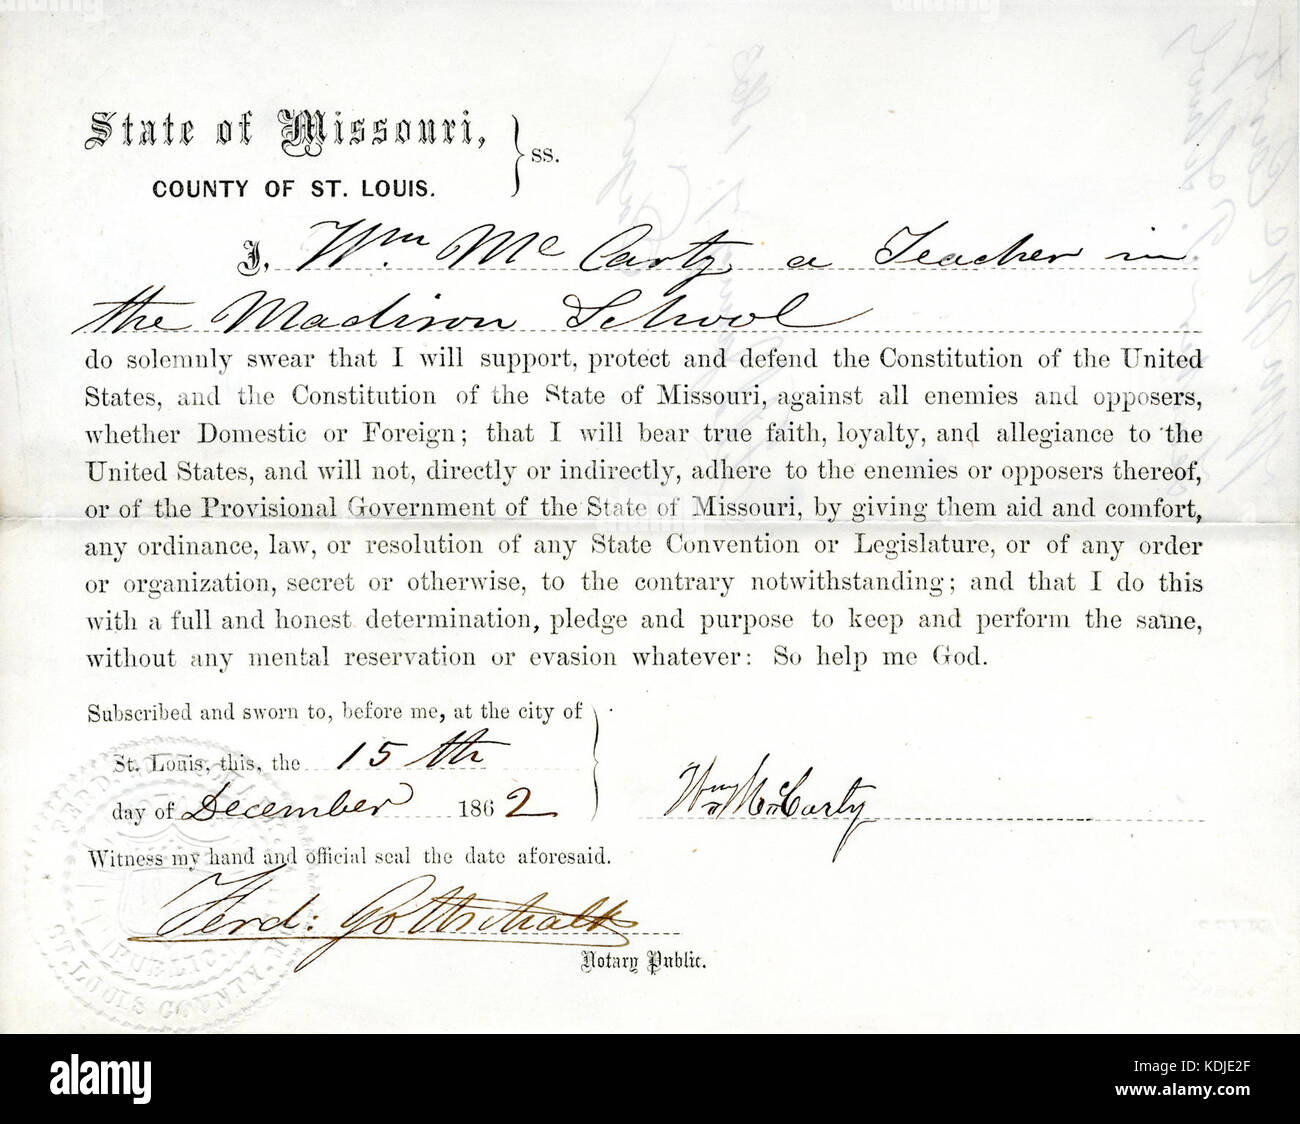 State of Missouri,
COUNTY OF ST. LOUIS.
} ss.
I, Wm. McCarty a Teacher in
the Madison School
do solemnly swear that I will support, protect and defend the Constitution of the United
States, and the Constitution of the State of Missouri, against all enemies and opposers,
whether Domestic or Foreign; that I will bear true faith, loyalty, and allegiance to the
United States, and will not, directly or indirectly, adhere to the enemies or opposers thereof,
or of the Provisional Government of the State of Missouri, by giving them aid and comfort,
any ordinance, law, or resolution of any State Convention or Legislature, or of any order
or organization, secret or otherwise, to the contrary notwithstanding; and that I do this
with a full and honest determination, pledge and purpose to keep and perform the same,
without any mental reservation or evasion whatever: So help me God.
Subscribed and sworn to, before me, at the city of
St. Louis, this, the 15th
day of December 1862
Wm McCarty
Witness my hand and official seal the date aforesaid.
Ferd: Gottschalk
Notary Public.
PUBLIC.
ST. LOUIS COUNTY, MO.
alamy
Image ID: KDJE2F
www.alamy.com